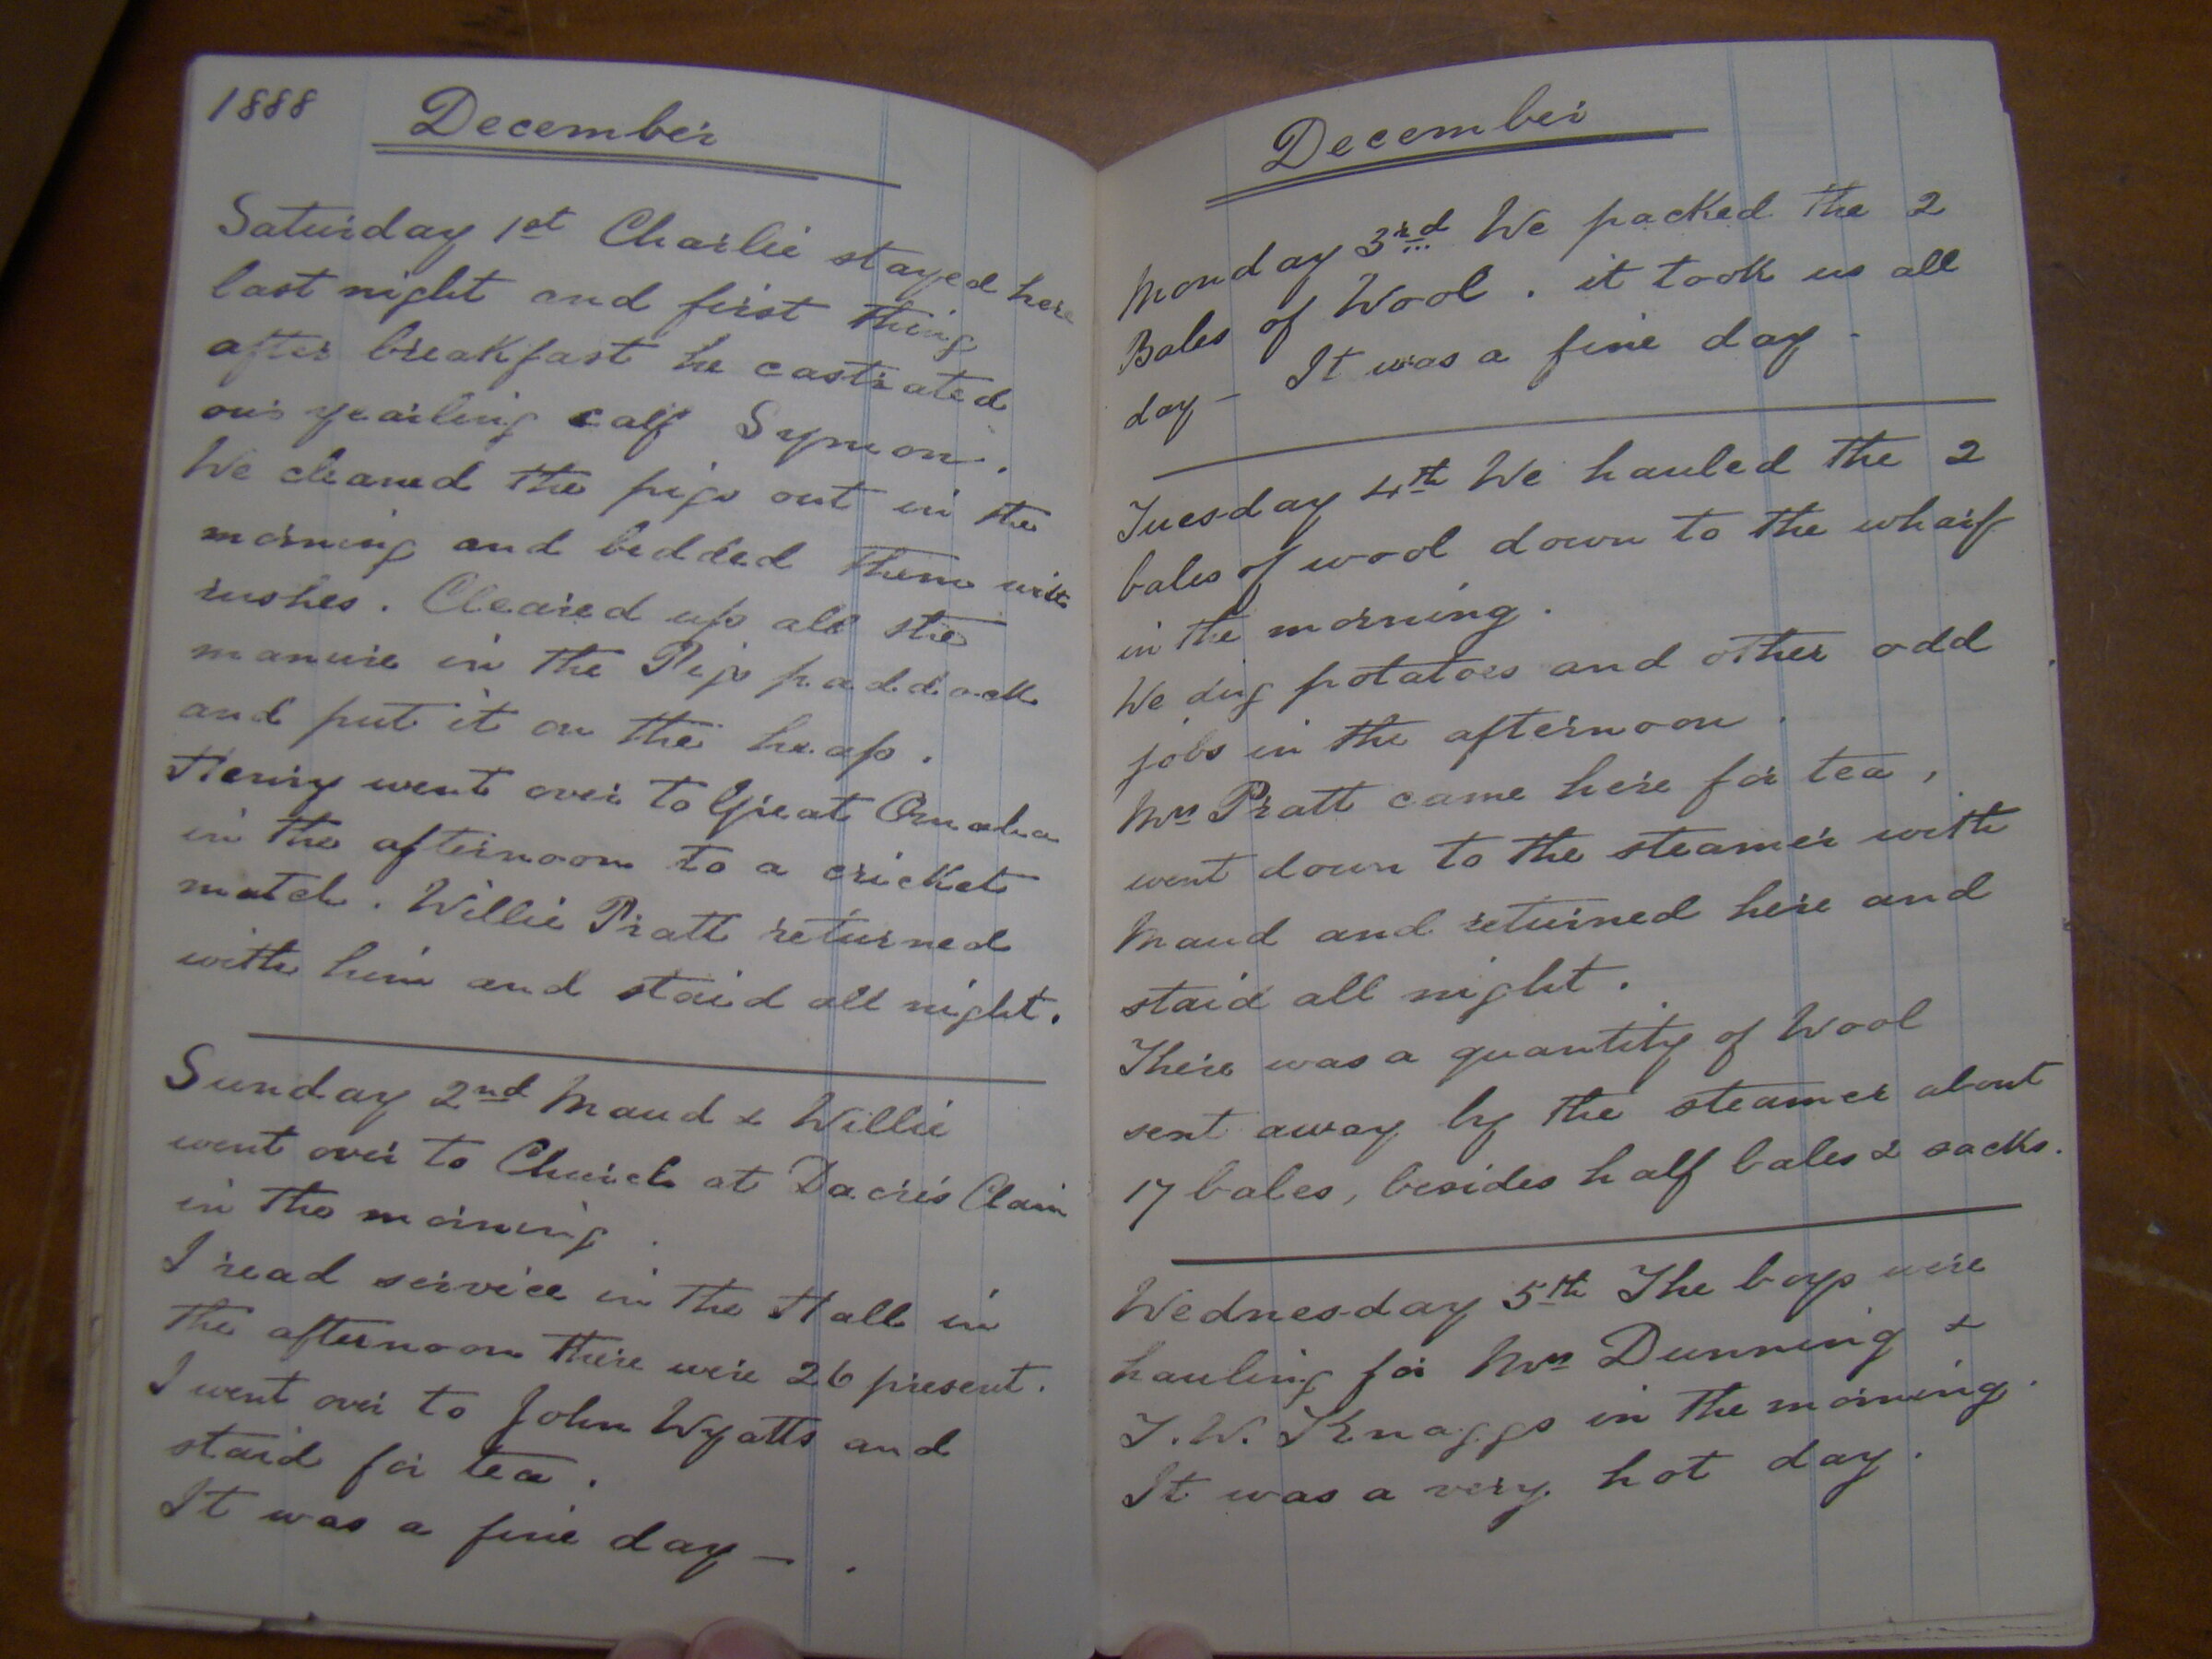 1888 December
Saturday 1st Charlie stayed here
last night and first thing
after breakfast he castrated
our yearling calf Symon.
We cleaned the pigs out in the
morning and bedded them with
rushes. Cleared up all the
manure in the Pigs paddock
and put it on the heap.
Henry went over to Great Omaha
in the afternoon to a cricket
match. Willie Pratt returned
with him and staid all night.
Sunday 2nd Maud & Willie
went over to Church at Dacres Claim
in the morning.
I read service in the Hall in
the afternoon there were 26 present.
I went over to John Wyatts and
staid for tea.
It was a fine day - .
December
Monday 3rd We packed the 2
Bales of Wool. it took us all
day - It was a fine day -
Tuesday 4th We hauled the 2
bales of wool down to the wharf
in the morning.
We dug potatoes and other odd
jobs in the afternoon.
Mrs Pratt came here for tea,
went down to the steamer with
Maud and returned here and
staid all night.
There was a quantity of Wool
sent away by the steamer about
17 bales, besides half bales & sacks.
Wednesday 5th The boys were
hauling for Mrs Dunning &
T.W. Knaggs in the morning.
It was a very hot day.